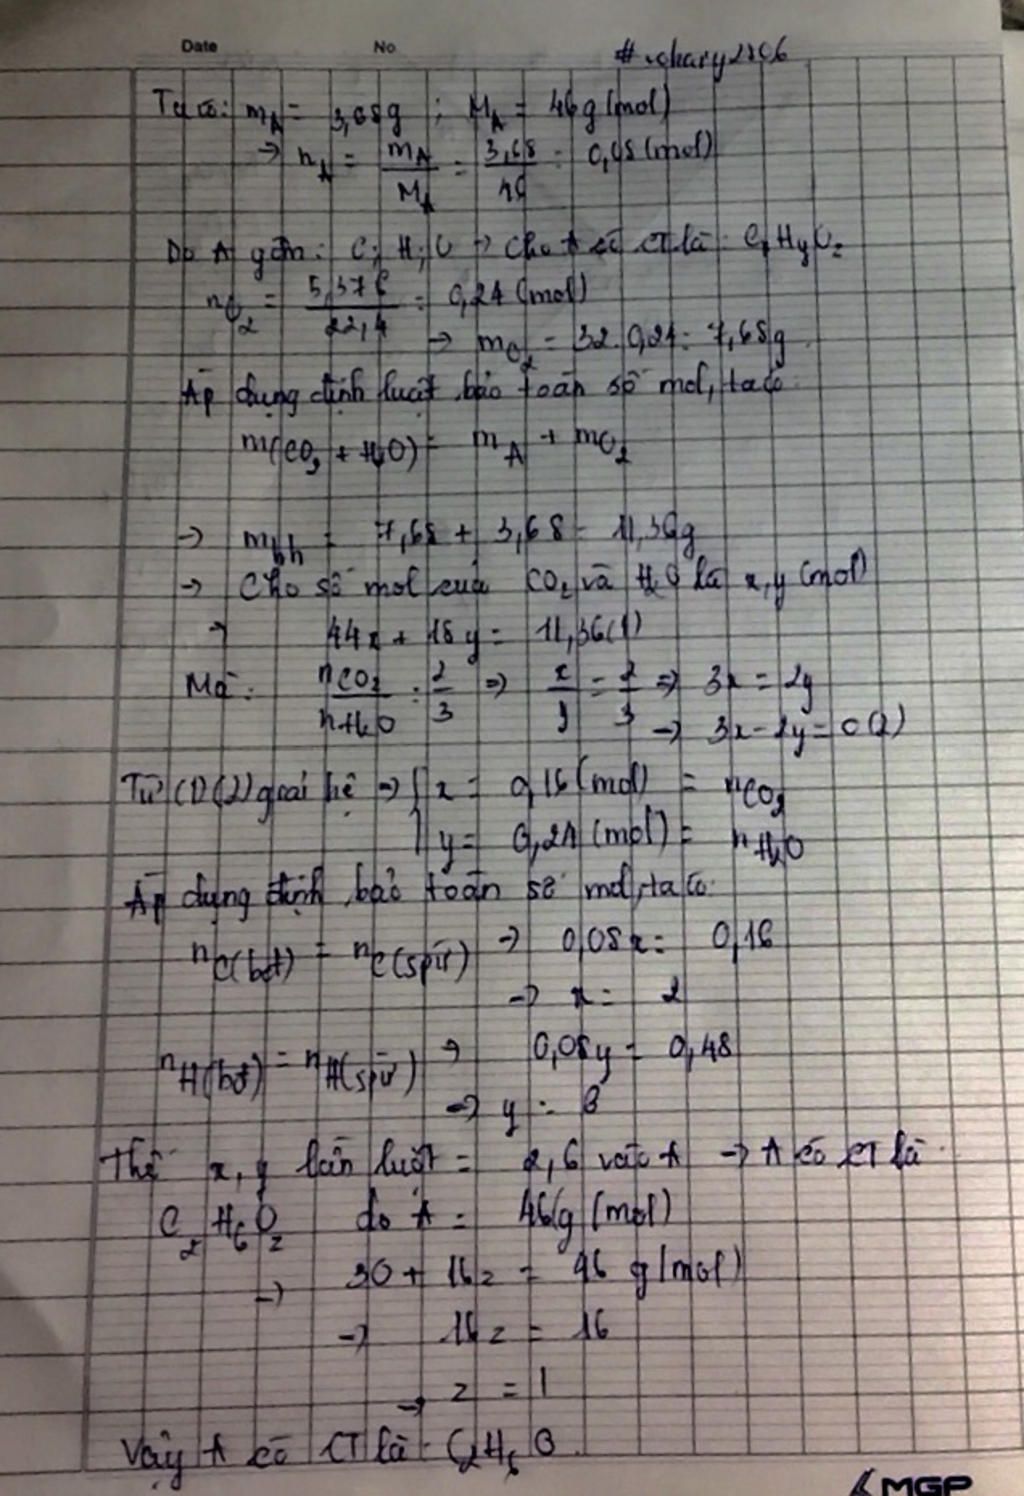 Date No
Ta có: mA = 3,68g ; MA = 46g (mol)
→ nA = mA/MA = 3,68/46 = 0,08 (mol)
Do A gồm: C; H; O → Cho A có CT là: CxHyOz
nO2 = 5,376/22,4 = 0,24 (mol)
→ mO2 = 32.0,24 = 7,68g
Áp dụng định luật bảo toàn số mol, ta có:
m(CO2 + H2O) = mA + mO2
→ mhh = 7,68 + 3,68 = 11,36g
→ Cho số mol của CO2 và H2O là x,y (mol)
→ 44x + 18y = 11,36(1)
Mà: nCO2/nH2O = 2/3 => x/y = 2/3 => 3x = 2y
→ 3x - 2y = 0(2)
Từ (1)(2) giải hệ → { x = 0,16 (mol) = nCO2
y = 0,24 (mol) = nH2O
Áp dụng định bảo toàn số mol, ta có:
nC(bđ) = nC(spư) → 0,08x = 0,16
→ x = 2
nH(bđ) = nH(spư) → 0,08y = 0,48
→ y = 6
Thế x, y lần lượt = 2,6 vào A → A có CT là:
C2H6Oz do A = 46g (mol)
→ 30 + 16z = 46 g(mol)
→ 16z = 16
→ z = 1
Vậy A có CT là: C2H6O
MGP